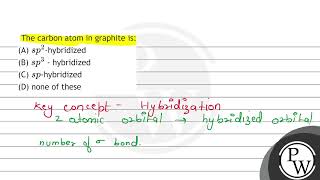 The carbon atom in graphite is:
(A) sp²-hybridized
(B) sp³ - hybridized
(C) sp-hybridized
(D) none of these
Key concept - Hybridization
2 atomic orbital → hybridized orbital
number of σ bond.
PW